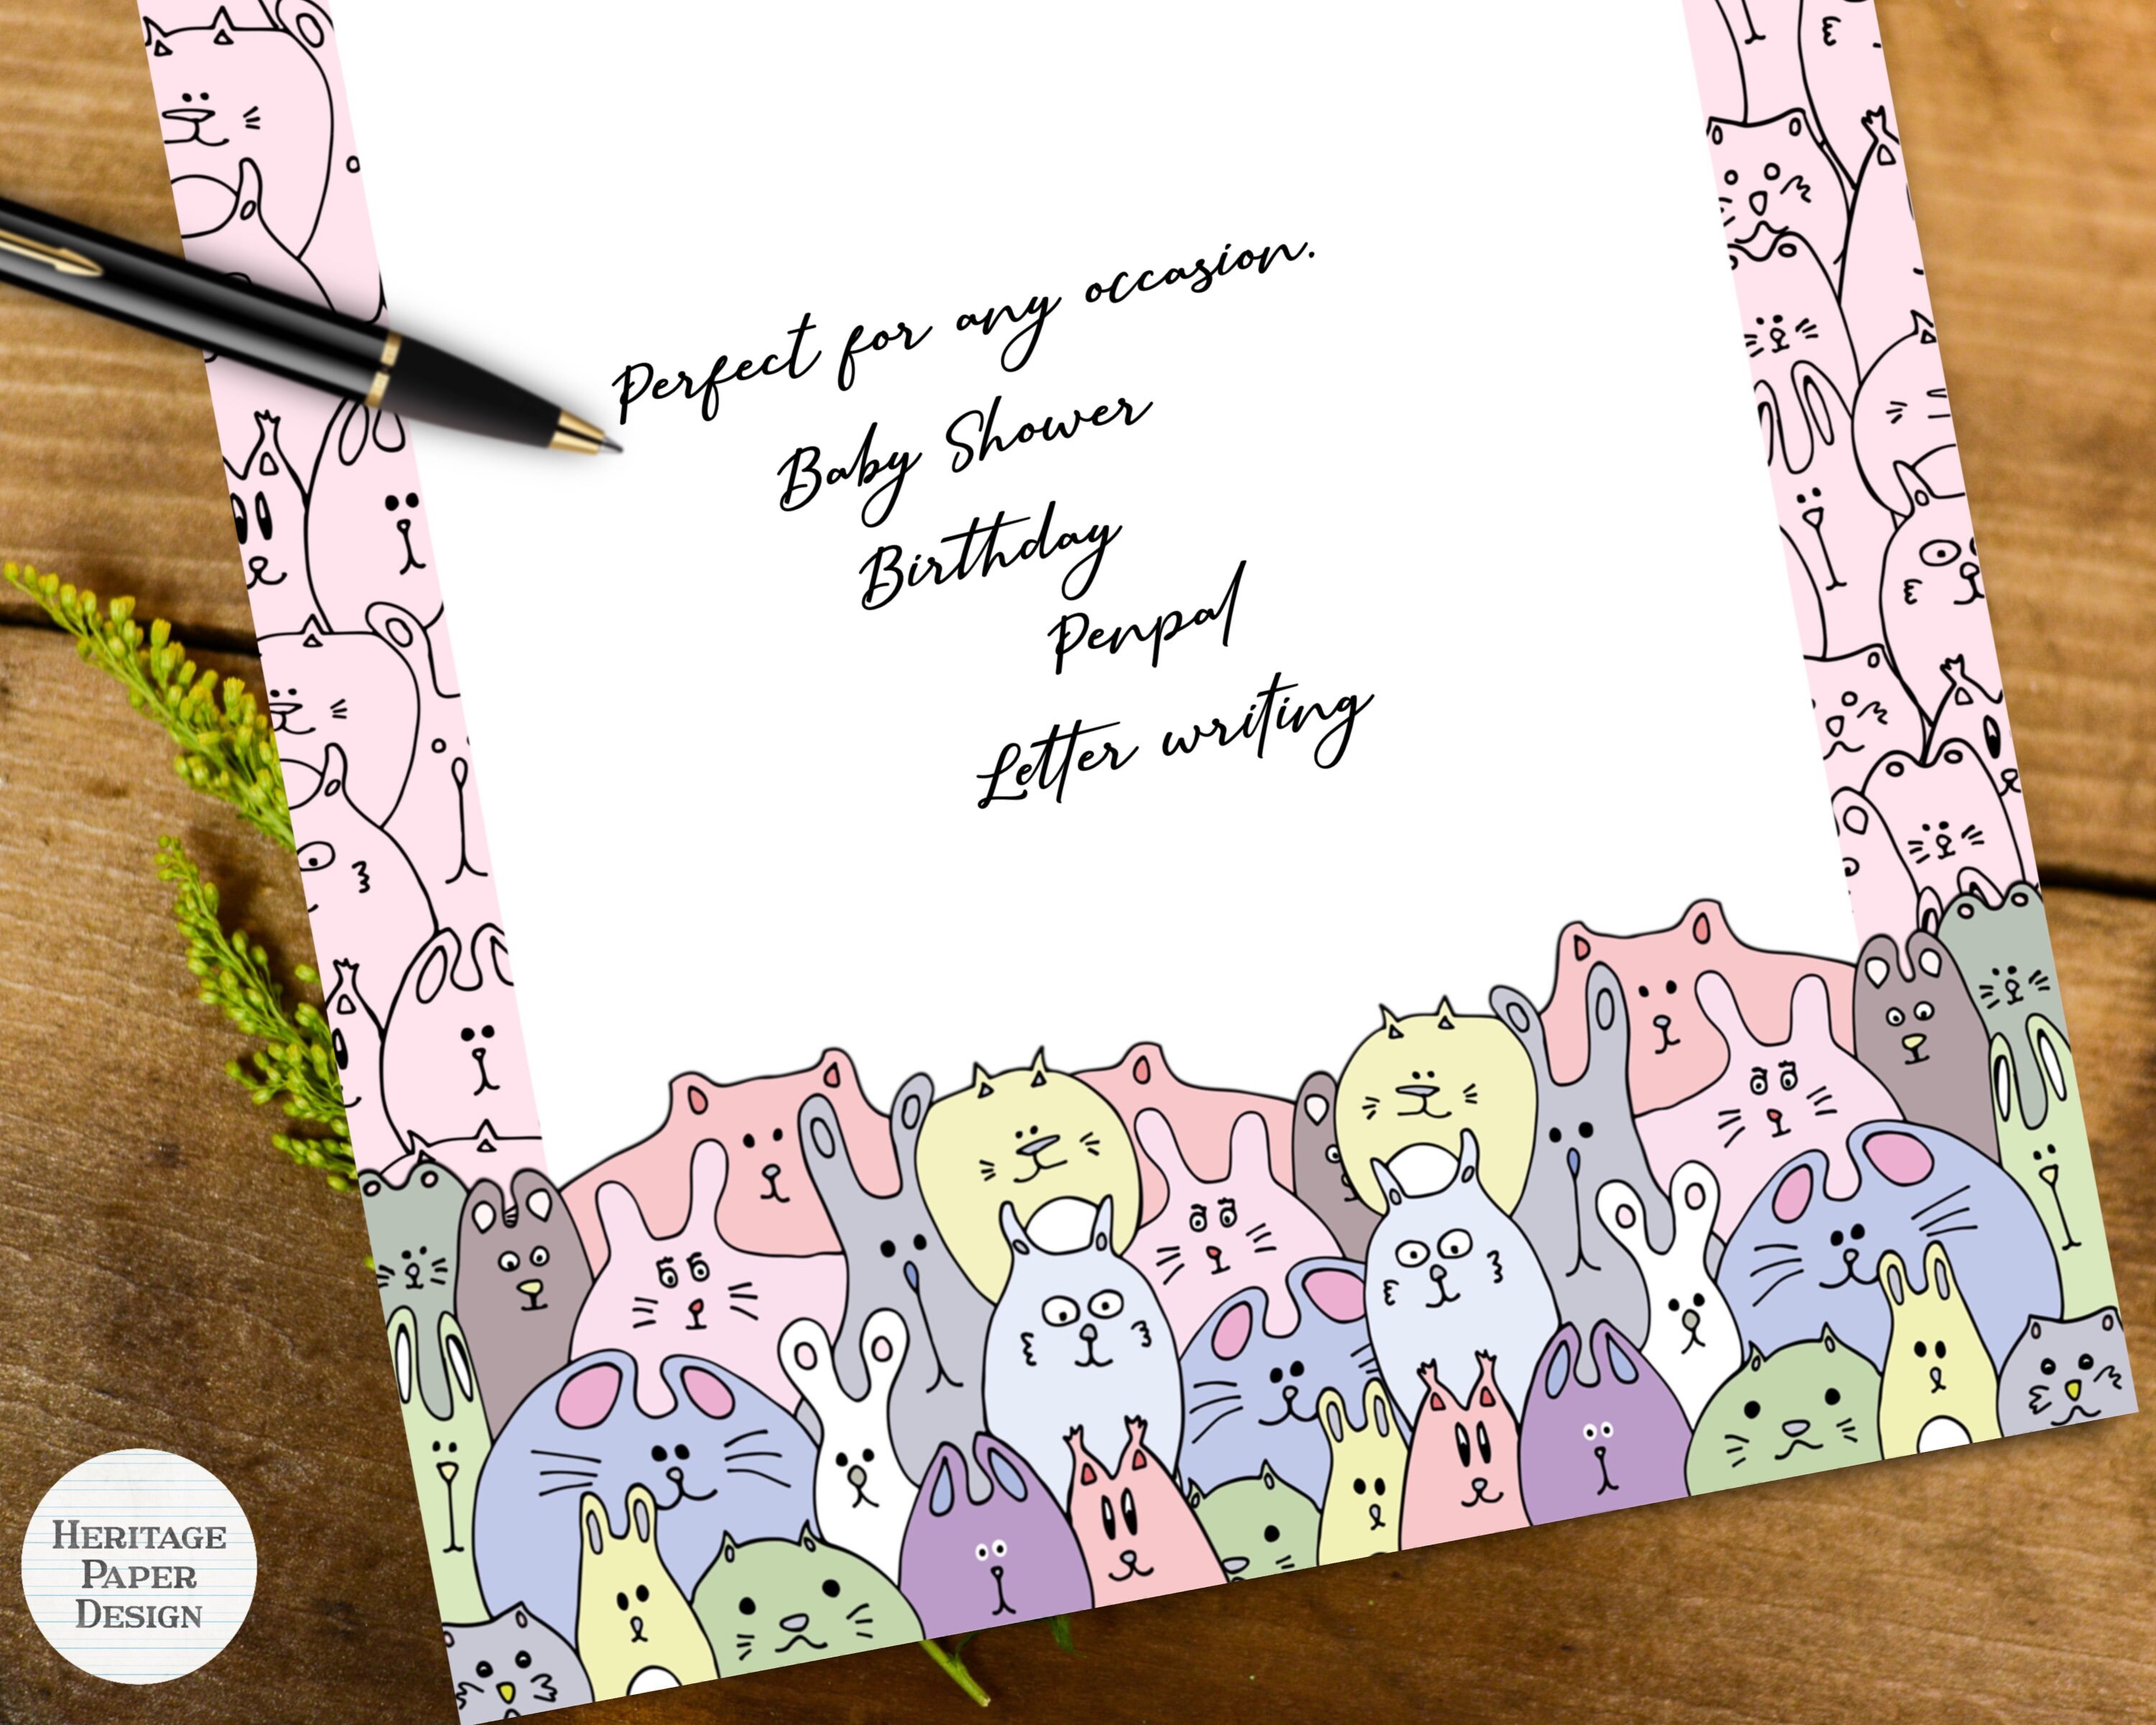 Perfect for any occasion.
Baby Shower
Birthday
Penpal
Letter writing
HERITAGE
PAPER
DESIGN